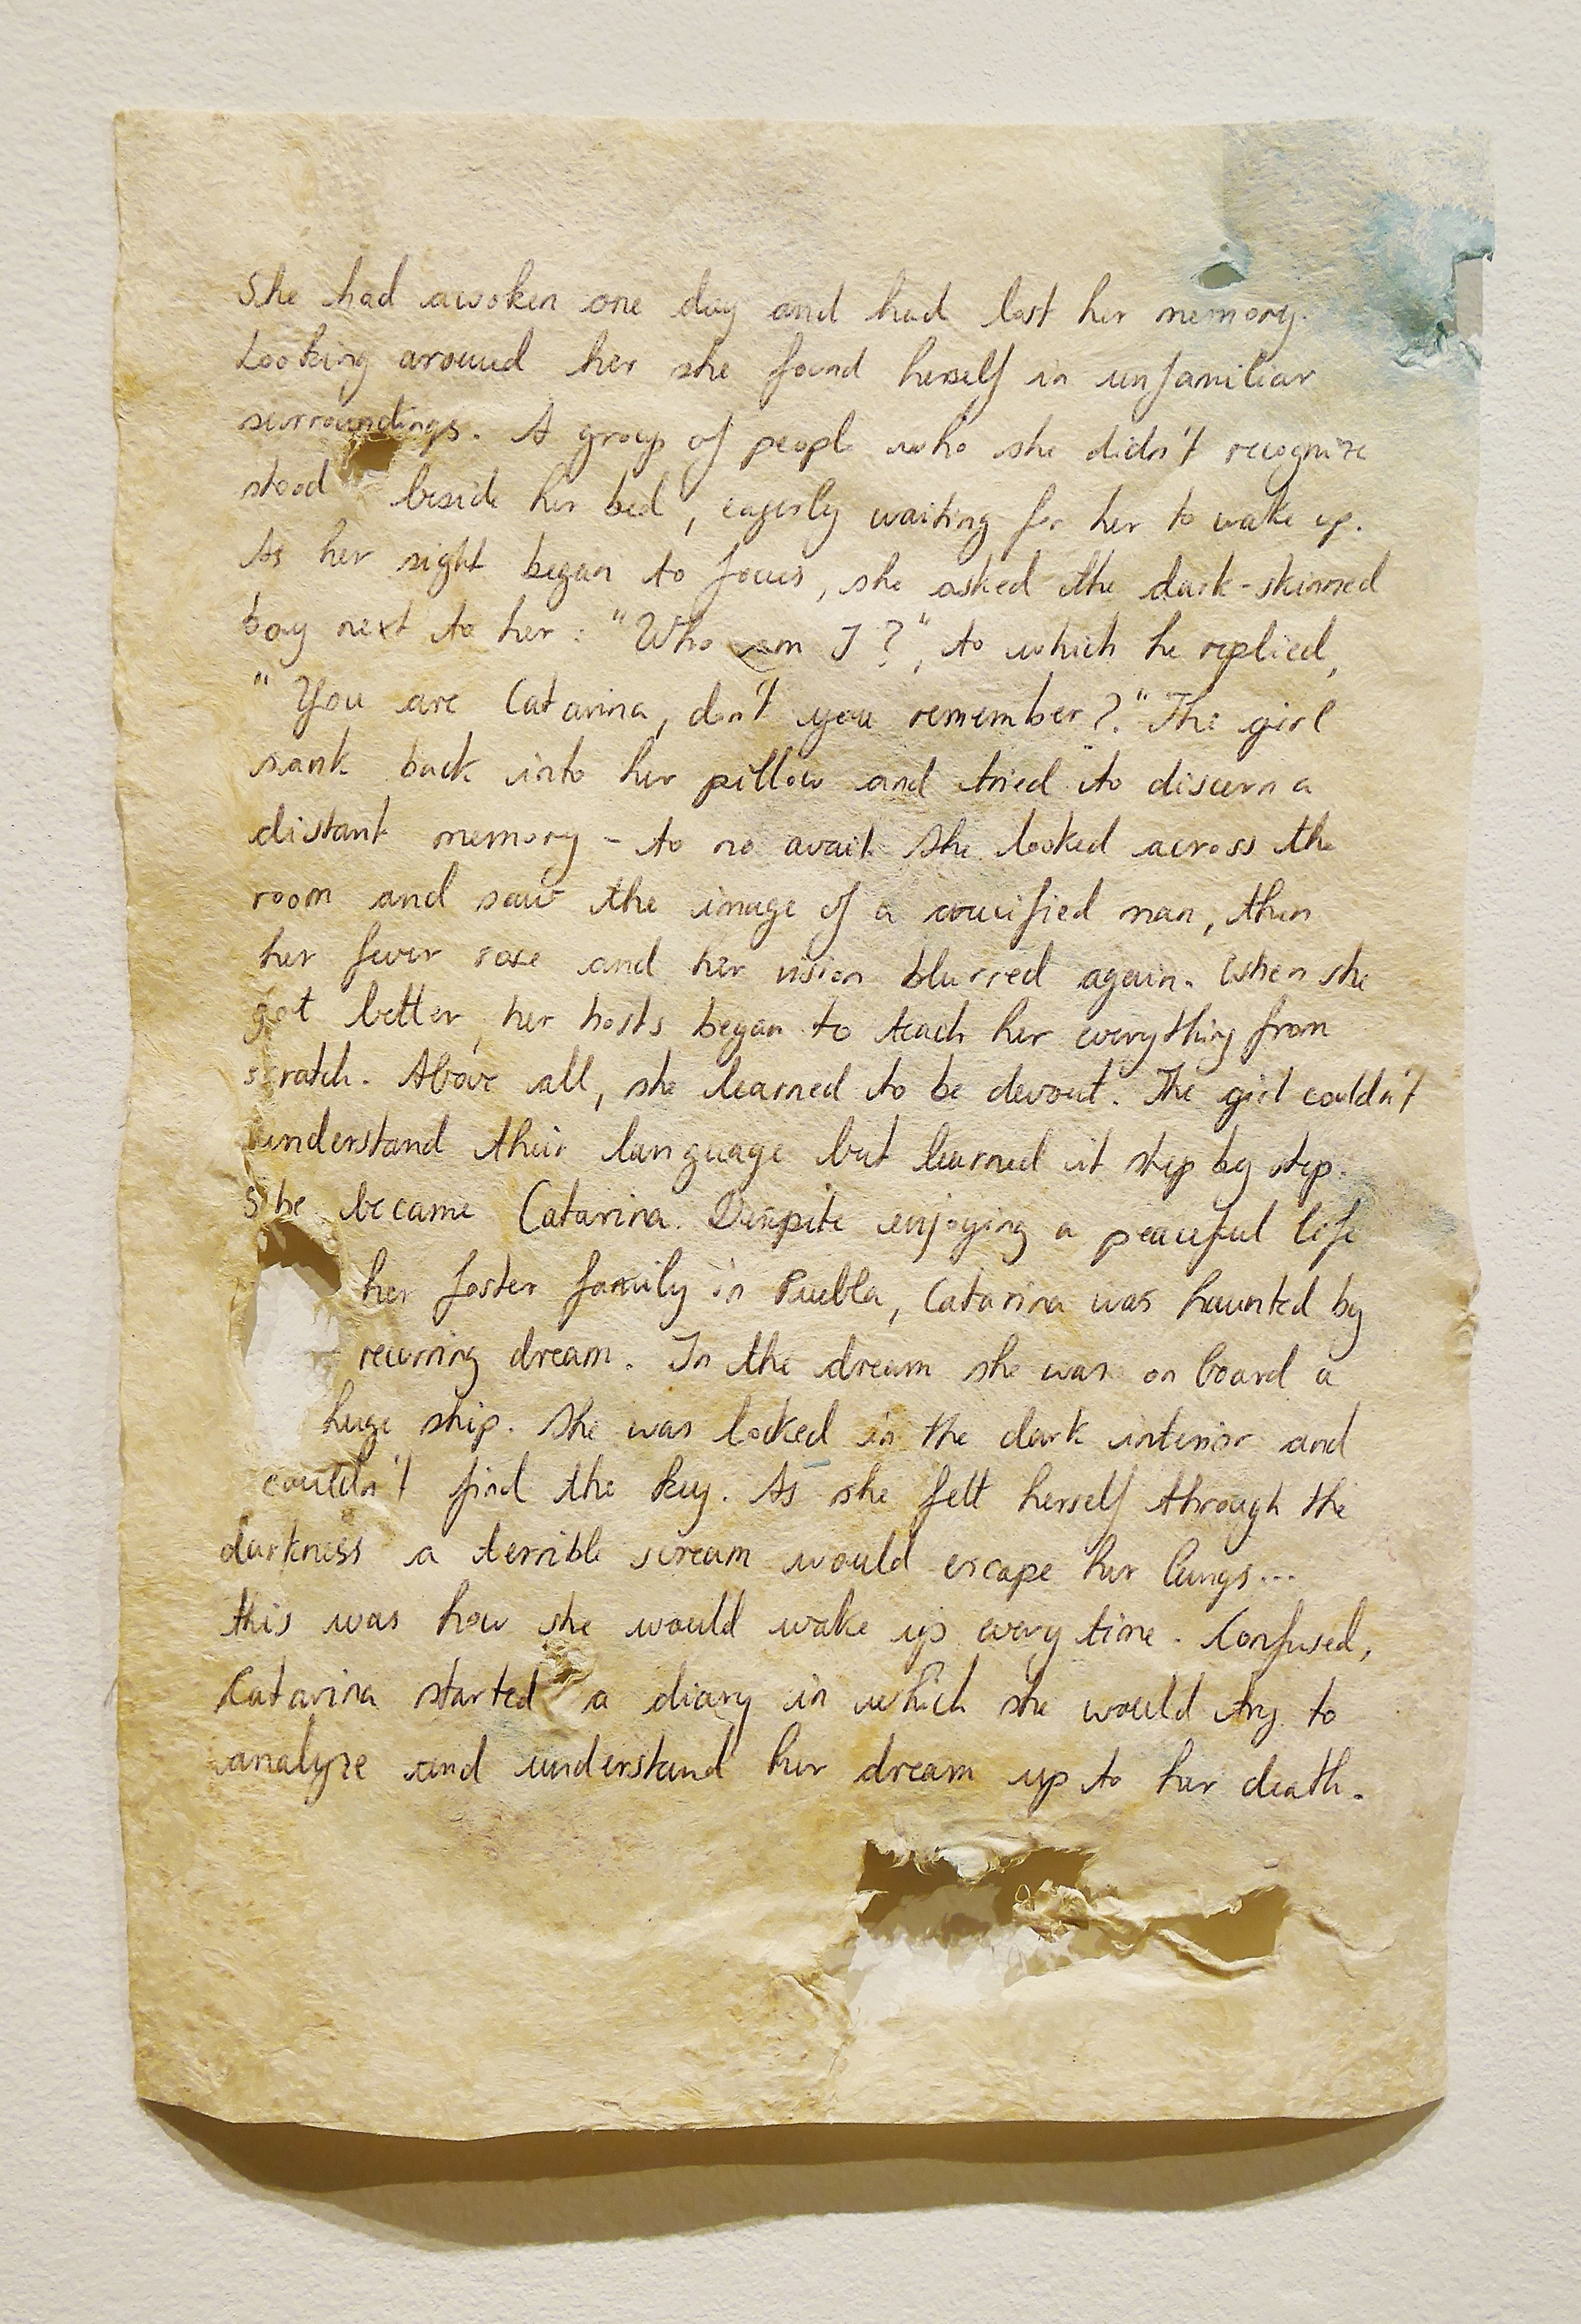 She had awoken one day and had lost her memory.
Looking around her she found herself in unfamiliar
surroundings. A group of people who she didn't recognize
stood beside her bed, eagerly waiting for her to wake up.
As her sight began to focus, she asked the dark-skinned
boy next to her: "Who am I?", to which he replied,
"You are Catarina, don't you remember?." The girl
sank back into her pillow and tried to discern a
distant memory - to no avail. She looked across the
room and saw the image of a crucified man, then
her fever rose and her vision blurred again. When she
got better, her hosts began to teach her everything from
scratch. Above all, she learned to be devout. The girl couldn't
understand their language but learned it step by step.
She became Catarina. Despite enjoying a peaceful life
her foster family in Puebla, Catarina was haunted by
recurring dream. In the dream she was on board a
huge ship. She was locked in the dark interior and
couldn't find the key. As she felt herself through the
darkness a terrible scream would escape her lungs...
this was how she would wake up every time. Confused,
Catarina started a diary in which she would try to
analyze and understand her dream up to her death.